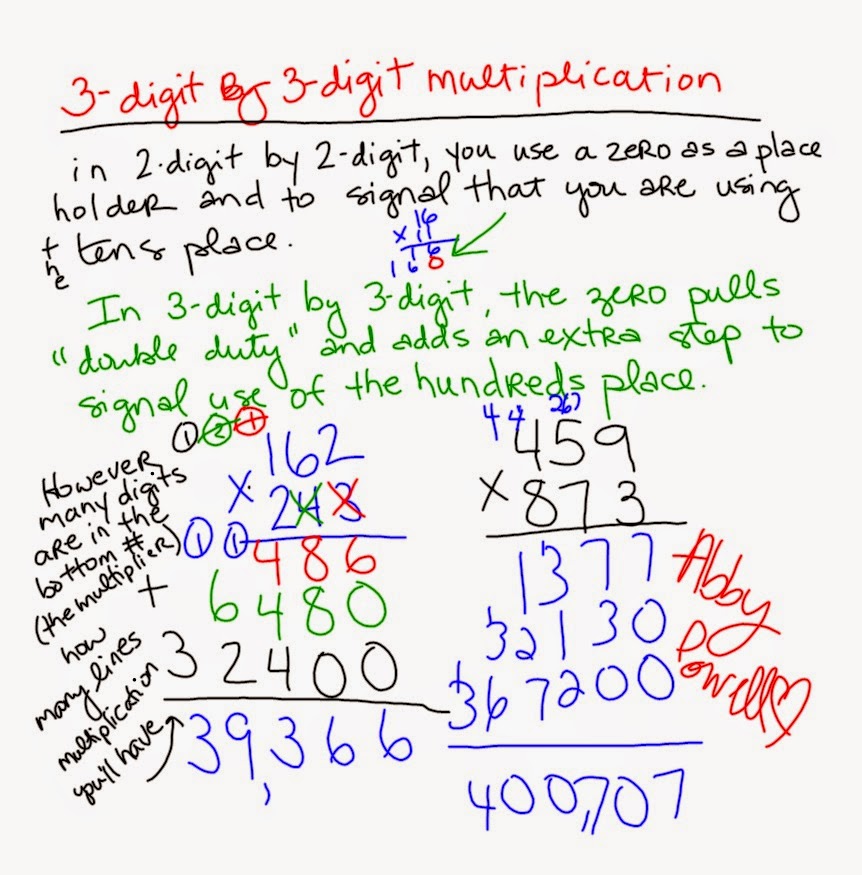 3-digit By 3-digit multiplication
in 2-digit by 2-digit, you use a zero as a place
holder and to signal that you are using
the tens place.
16
x 11
16
160
In 3-digit by 3-digit, the zero pulls
"double duty" and adds an extra step to
signal use of the hundreds place.
1 2 1
162
x 243
1 1
486
6480
32400
39,366
However
many digits
are in the
bottom #
(the multiplier)
+
how
many lines
multiplication
you'll have
4 4
459
x 873
1377
32130
367200
400,707
Abby
Powell♡